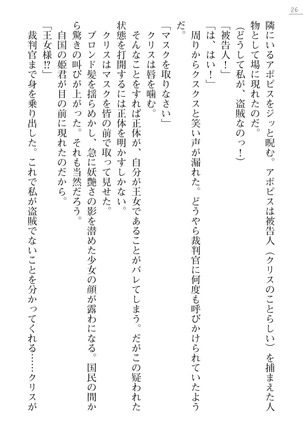 26
隣にいるアポピスをジッと睨む。アポピスは被告人（クリスのことらしい）を捕まえた人
物として場に現れたのだ。
（どうして私が、盗賊なのっ！）
「被告人！」
「は、はい！」
周りからクスクスと笑い声が漏れた。どうやら裁判官に何度も呼びかけられていたよう
だ。
「マスクを取りなさい」
クリスは唇を噛む。
そんなことをすれば正体が、自分が王女であることがバレてしまう。だがこの疑われた
状態を打開するには正体を明かすしかない。
クリスはマスクを皆の前で取って見せた。
ブロンド髪を揺らめかし、急に妖艶さの影を潜めた少女の顔が露わになる。国民の間か
ら驚きの叫びが上がった。それも当然だろう。
自国の姫君が目の前に現れたのだから。
「王女様!?」
裁判官まで身を乗り出した。これで私が盗賊でないことを分かってくれる……クリスが